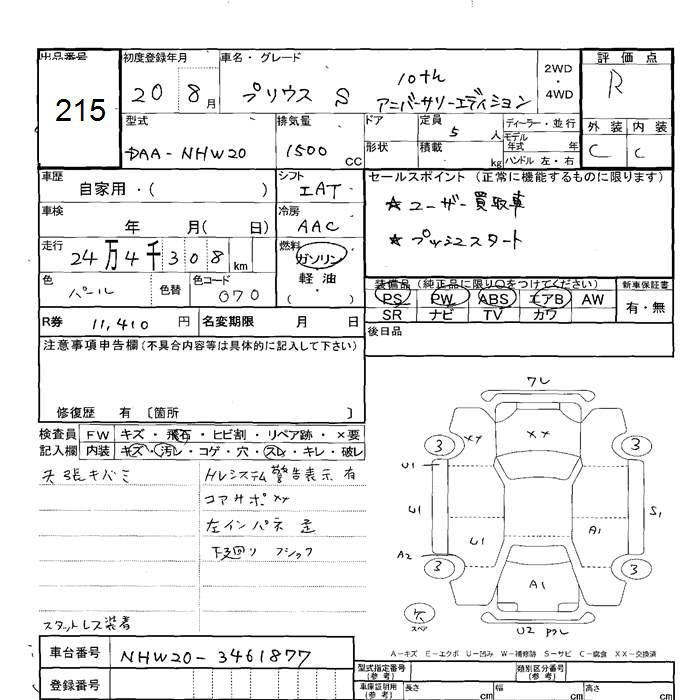 出品番号
215
初度登録年月
20 8月
車名・グレード
プリウス S 10th
アニバーサリーエディション
2WD
・
4WD
評価点
R
外装 内装
C C
型式
DAA-NHW20
排気量
1500 cc
ドア
形状
定員
5 人
積載
kg
ディーラー・並行
モデル
年式 年
ハンドル 左・右
車歴
自家用・( )
シフト
車検
年 月( 日)
冷房
AAC
走行
24万4千308 km
燃料
ガソリン
軽油
( )
色
パール
色替
色コード
070
セールスポイント (正常に機能するものに限ります)
☆ ユーザー買取車
☆ プッシュスタート
装備品(純正品に限り○をつけてください)
PS PW ABS エアB AW
SR ナビ TV カワ
新車保証書
有・無
後日品
R券 11,410 円
名変期限 月 日
注意事項申告欄(不具合内容等は具体的に記入して下さい)
修復歴 有 〔箇所 〕
検査員
記入欄
FW キズ・飛石・ヒビ割・リペア跡・×要
内装 キズ・汚レ・コゲ・穴・スレ・キレ・破レ
天張キバミ
HVシステム警告表示有
コアサポXX
左インパネ 歪
下廻り
スタットレス装着
ワレ
XX
XX
3
3
U1
U1
U1
A1
S1
A2
3
3
A1
スペア
U2 ワレ
A-キズ E-エクボ U-凹み W-補修跡 S-サビ C-腐食 XX-交換済
車台番号
NHW20-3461877
登録番号
型式指定番号
(参考)
類別区分番号
(参考)
車庫証明用
(参考)
長さ cm
幅 cm
高さ cm